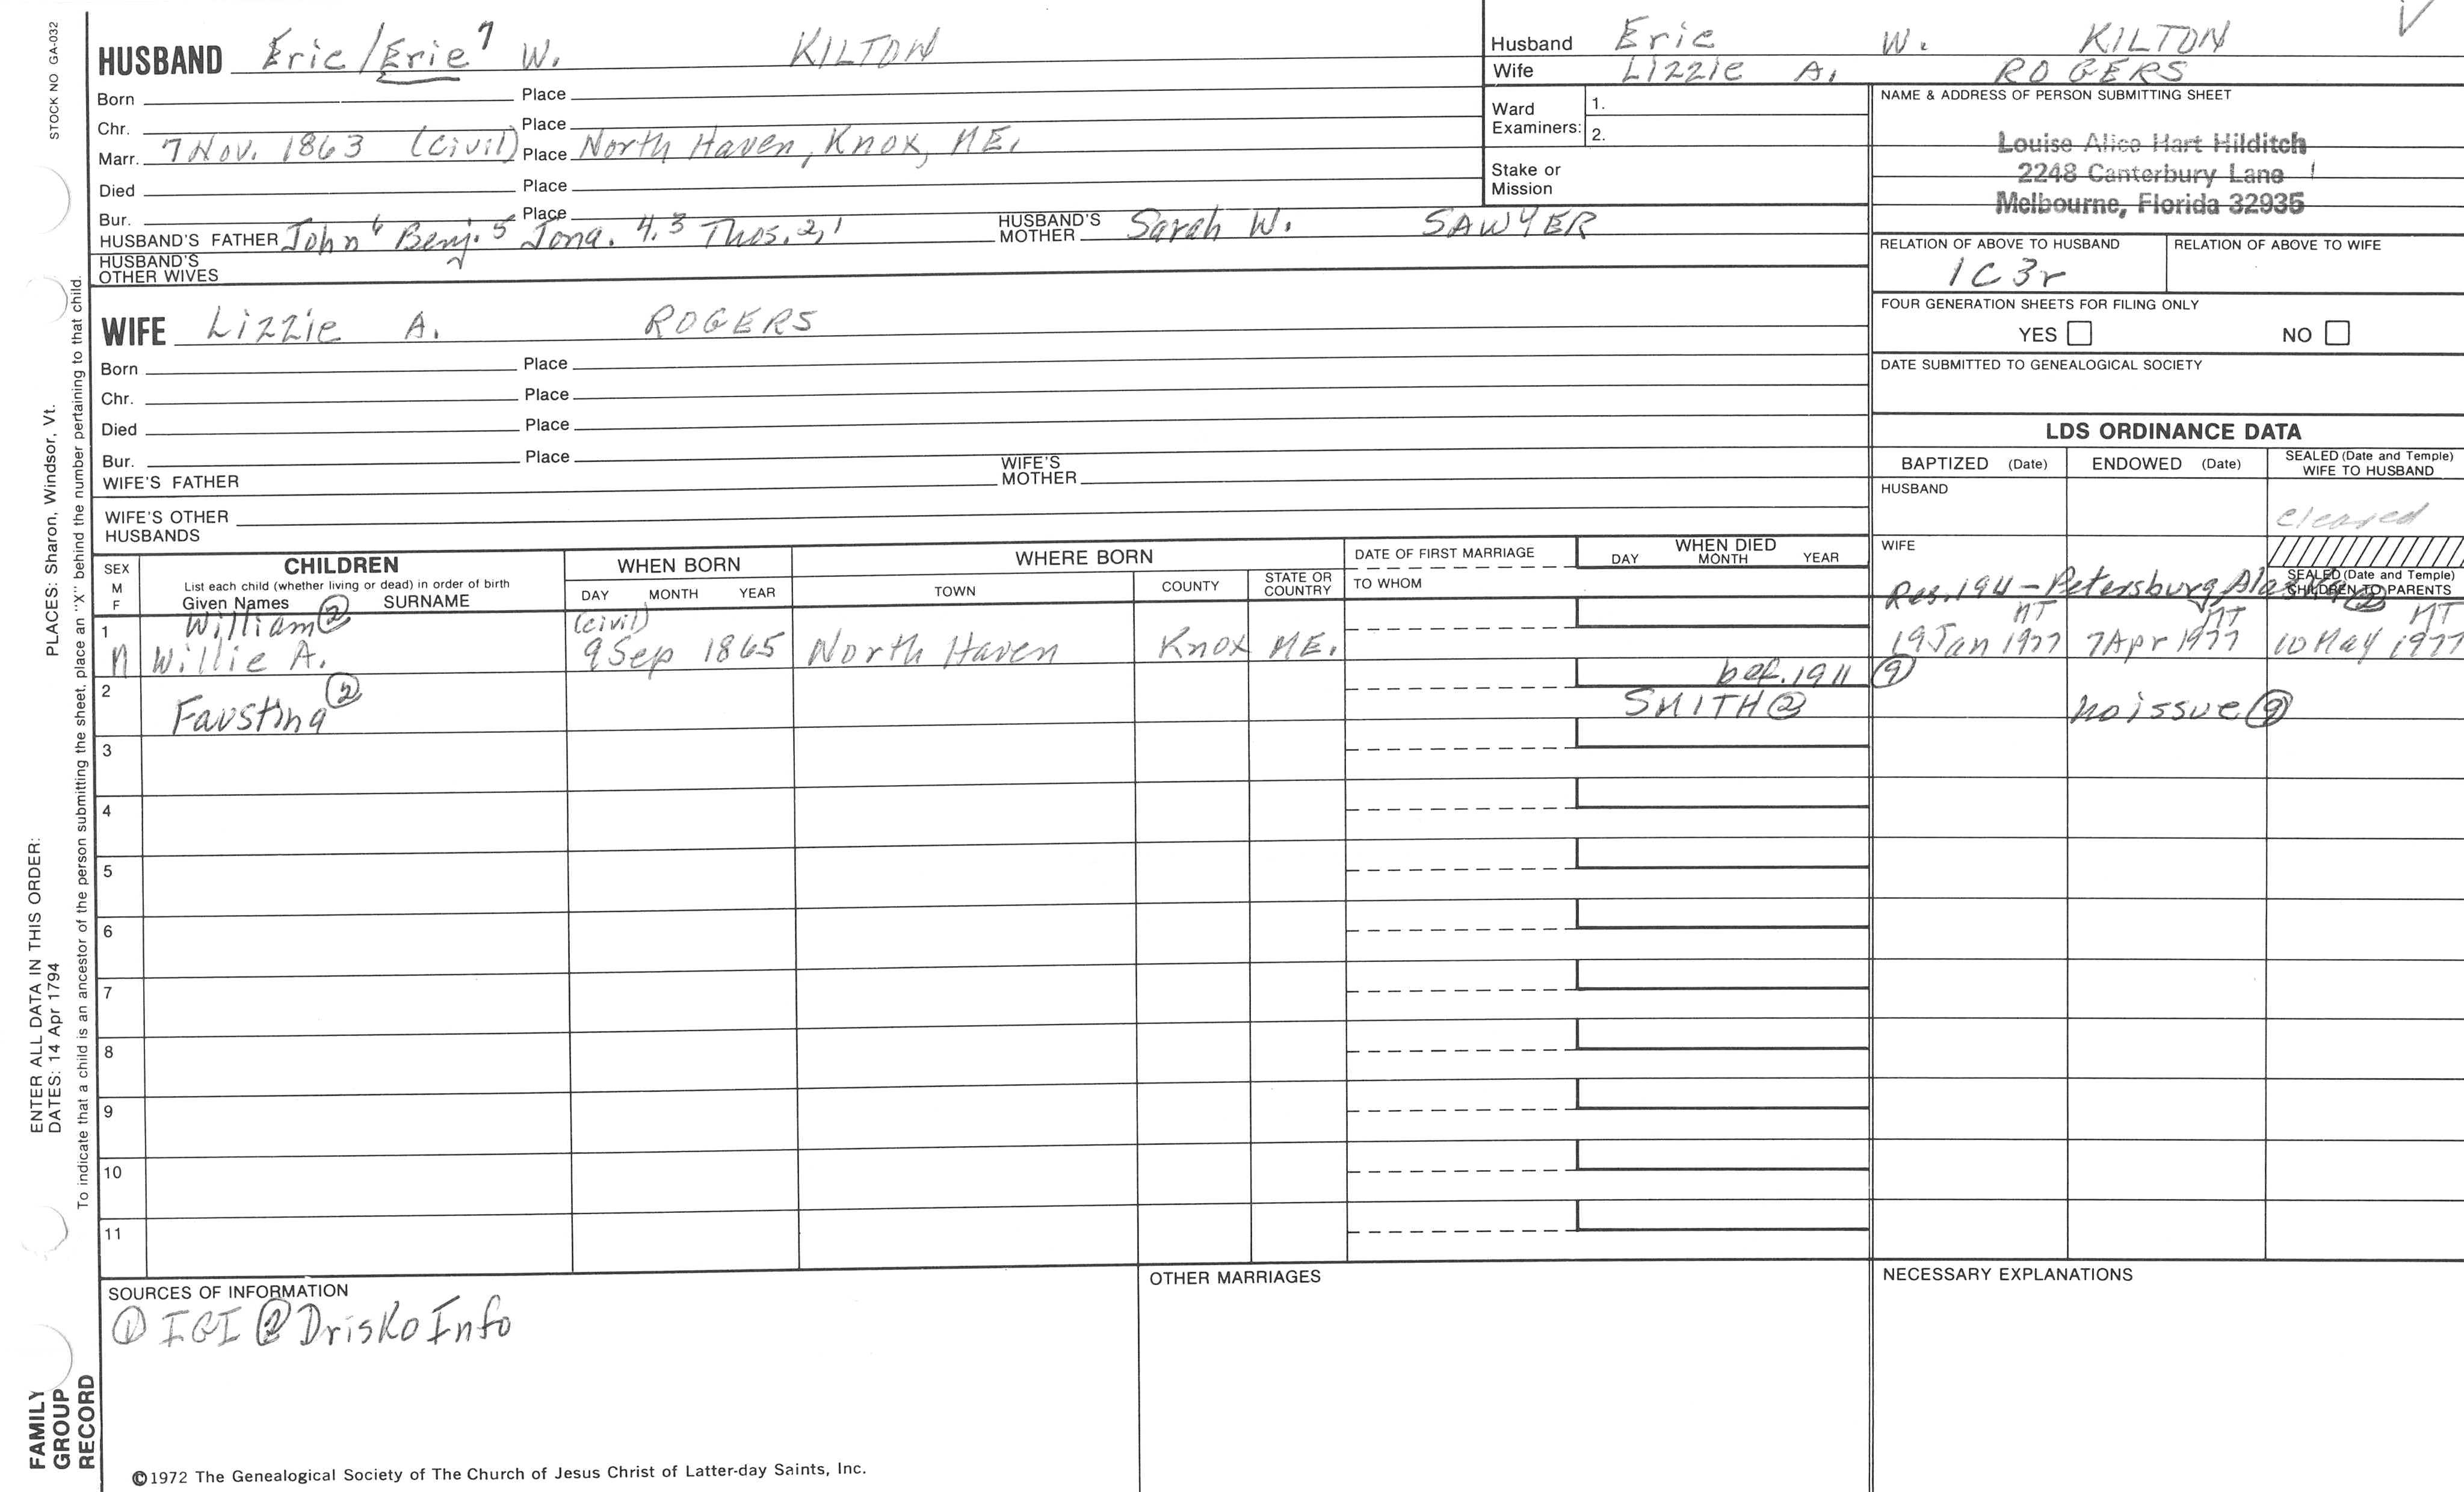 STOCK NO GA-032
PLACES: Sharon, Windsor, Vt.
ENTER ALL DATA IN THIS ORDER:
DATES: 14 Apr 1794
To indicate that a child is an ancestor of the person submitting the sheet, place an "X" behind the number pertaining to that child.
FAMILY
GROUP
RECORD
HUSBAND Eric/Erie 7 W. KILTON
Born Place
Chr. Place
Marr. 7 Nov. 1863 (Civil) Place North Haven, Knox, ME.
Died Place
Bur. Place
HUSBAND'S FATHER John 6 Benj. 5 Jona. 4,3 Thos. 2,1 HUSBAND'S MOTHER Sarah W. SAWYER
HUSBAND'S
OTHER WIVES
WIFE Lizzie A. ROGERS
Born Place
Chr. Place
Died Place
Bur. Place
WIFE'S FATHER WIFE'S MOTHER
WIFE'S OTHER
HUSBANDS
Husband Eric W. KILTON
Wife Lizzie A. ROGERS
Ward
Examiners: 1.
2.
Stake or
Mission
NAME & ADDRESS OF PERSON SUBMITTING SHEET
Louise Alice Hart Hilditch
2248 Canterbury Lane
Melbourne, Florida 32935
RELATION OF ABOVE TO HUSBAND RELATION OF ABOVE TO WIFE
1C3r
FOUR GENERATION SHEETS FOR FILING ONLY
YES NO
DATE SUBMITTED TO GENEALOGICAL SOCIETY
LDS ORDINANCE DATA
BAPTIZED (Date) ENDOWED (Date) SEALED (Date and Temple)
WIFE TO HUSBAND
HUSBAND
cleared
WIFE
SEALED (Date and Temple)
CHILDREN TO PARENTS
SEX
M
F
CHILDREN
List each child (whether living or dead) in order of birth
Given Names SURNAME
WHEN BORN
DAY MONTH YEAR
WHERE BORN
TOWN COUNTY STATE OR
COUNTRY
DATE OF FIRST MARRIAGE
TO WHOM
WHEN DIED
DAY MONTH YEAR
1 William ② (civil) Petersburg, Alaska ②
M Willie A. 9 Sep 1865 North Haven Knox ME. 19 Jan 1977 7 Apr 1977 10 May 1977
2 Faustina ② bef. 1911 ⑨
SMITH ② no issue ⑨
3
4
5
6
7
8
9
10
11
SOURCES OF INFORMATION
① IGI ② Drisko Info
OTHER MARRIAGES
NECESSARY EXPLANATIONS
©1972 The Genealogical Society of The Church of Jesus Christ of Latter-day Saints, Inc.